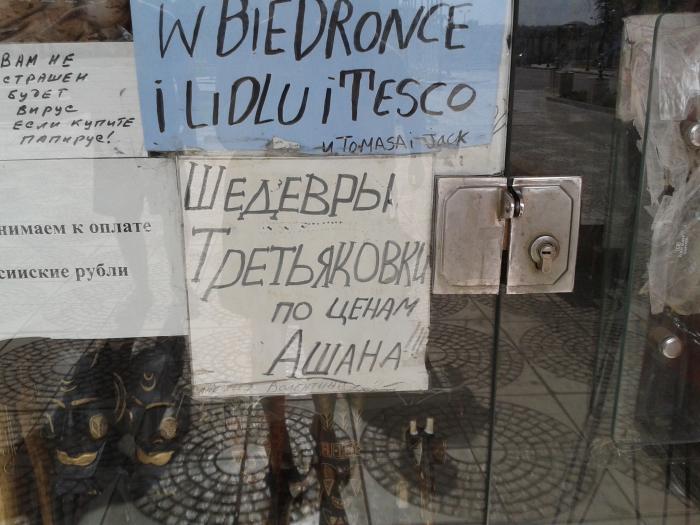 W BIEDRONCE
i LIDLU i TESCO
u TOMASA i JACK
ВАМ НЕ
СТРАШЕН
БУДЕТ
ВИРУС
ЕСЛИ КУПИТЕ
ПАПИРУС!
нимаем к оплате
ссийские рубли
ШЕДЕВРЫ
ТРЕТЬЯКОВКИ
ПО ЦЕНАМ
АШАНА!!!